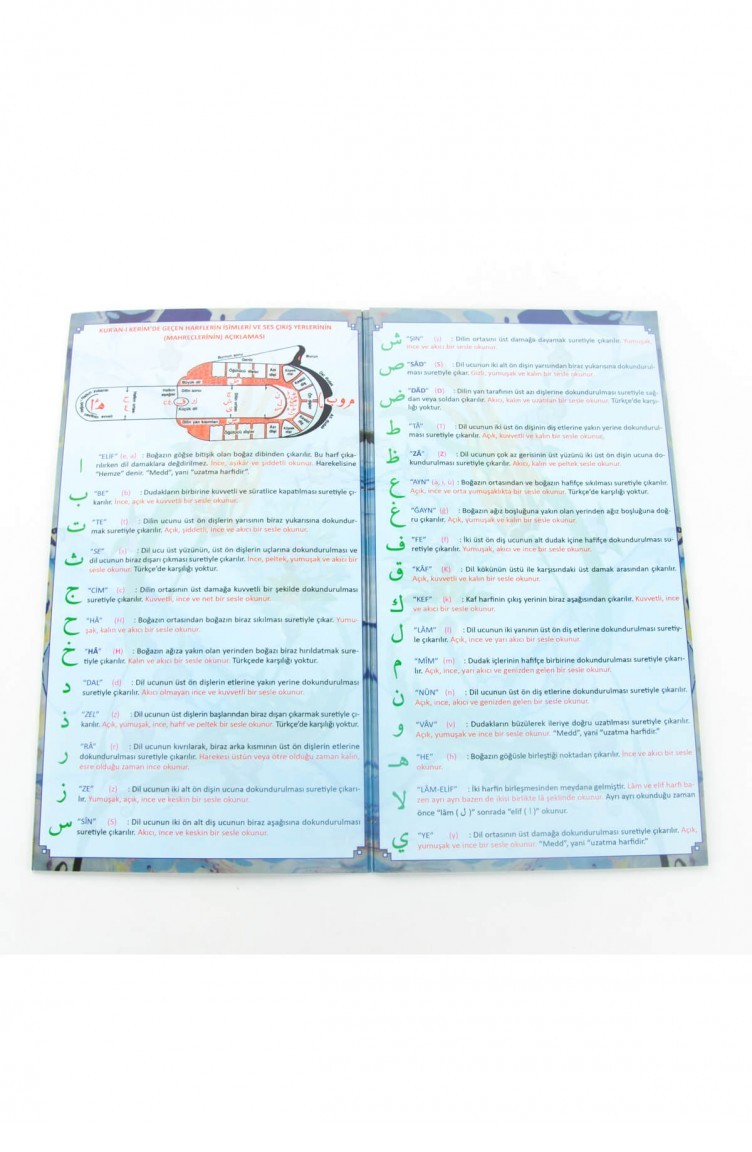 KUR'AN-I KERİM'DE GEÇEN HARFLERİN İSİMLERİ VE SES ÇIKIŞ YERLERİNİN
(MAHREÇLERİNİN) AÇIKLAMASI
ا "ELİF" (e, a) : Boğazın göğse bitişik olan boğaz dibinden çıkarılır. Bu harf çıka-
rılırken dil damaklara değdirilmez. İnce, aşikâr ve şiddetli okunur. Harekelisine
"Hemze" denir. "Medd", yani "uzatma harfidir".
ب "BE" (b) : Dudakların birbirine kuvvetli ve süratlice kapatılması suretiyle çı-
karılır. İnce, açık ve kuvvetli bir sesle okunur.
ت "TE" (t) : Dilin ucunu üst ön dişlerin yarısının biraz yukarısına dokundur-
mak suretiyle çıkarılır. Açık, şiddetli, ince ve akıcı bir sesle okunur.
ث "SE" : Dil ucu üst yüzünün, üst ön dişlerin uçlarına dokundurulması ve
dil ucunun biraz dışarı çıkması suretiyle çıkarılır. İnce, peltek, yumuşak ve akıcı bir
sesle okunur. Türkçe'de karşılığı yoktur.
ج "CİM" (c) : Dilin ortasının üst damağa kuvvetli bir şekilde dokundurulması
suretiyle çıkarılır. Kuvvetli, ince ve net bir sesle okunur.
ح "HÂ" (H) : Boğazın ortasından boğazın biraz sıkılması suretiyle çıkar. Yumu-
şak, kalın ve açık bir sesle okunur.
خ "HÂ" (H) : Boğazın ağıza yakın olan yerinden boğazı hırıldatmak sure-
tiyle çıkarılır. Kalın ve akıcı bir sesle okunur. Türkçede karşılığı yoktur.
د "DAL" (d) : Dil ucunun üst ön dişlerin etlerine yakın yerine dokundurulması
suretiyle çıkarılır. Akıcı olmayan ince ve kuvvetli bir sesle okunur.
ذ "ZEL" (z) : Dil ucunun üst dişlerin başlarından biraz dışarı çıkarmak suretiyle çı-
karılır. Açık, yumuşak, ince, hafif ve peltek bir sesle okunur. Türkçe'de karşılığı yoktur.
ر "RÂ" (r) : Dil ucunun kıvrılarak, biraz arka kısmının üst ön dişlerin etlerine
dokundurulması suretiyle çıkarılır. Harekesi üstün veya ötre olduğu zaman kalın,
esre olduğu zaman ince okunur.
ز "ZE" (z) : Dil ucunun iki alt ön dişin ucuna dokundurulması suretiyle çıkarı-
lır. Yumuşak, açık, ince ve keskin bir sesle okunur.
س "SÎN" (S) : Dil ucunun iki ön alt diş ucunun biraz aşağısına dokundurulması
suretiyle çıkarılır. Akıcı, ince ve keskin bir sesle okunur.
ش "ŞIN" (ş) : Dilin ortasını üst damağa dayamak suretiyle çıkarılır. Yumuşak,
ince ve akıcı bir sesle okunur.
ص "SÂD" (S) : Dil ucunun iki alt ön dişin yarısından biraz yukarısına dokundurul-
ması suretiyle çıkar. Gizli, yumuşak ve kalın bir sesle okunur.
ض "DÂD" (D) : Dilin yan tarafının üst azı dişlerine dokundurulması suretiyle sağ-
dan veya soldan çıkarılır. Akıcı, kalın ve uzatılan bir sesle okunur. Türkçe'de karşı-
lığı yoktur.
ط "TÂ" (T) : Dil ucunun iki üst ön dişinin diş etlerine yakın yerine dokundurul-
ması suretiyle çıkarılır. Açık, kuvvetli ve kalın bir sesle okunur.
ظ "ZÂ" (Z) : Dil ucunun çok az gerisinin üst yüzünü iki üst ön dişin ucuna do-
kundurulması suretiyle çıkarılır. Akıcı, kalın ve peltek sesle okunur.
ع "AYN" (a, ı, u) : Boğazın ortasından ve boğazın hafifçe sıkılması suretiyle çıkarılır.
Açık, ince ve orta yumuşaklıkta bir sesle okunur. Türkçe'de karşılığı yoktur.
غ "ĞAYN" (ğ) : Boğazın ağız boşluğuna yakın olan yerinden ağız boşluğuna doğ-
ru çıkarılır. Açık, yumuşak ve kalın bir sesle okunur.
ف "FE" (f) : İki üst ön diş ucunun alt dudak içine hafifçe dokundurulması su-
retiyle çıkarılır. Yumuşak, akıcı ve ince bir sesle okunur.
ق "KÂF" (K) : Dil kökünün üstü ile karşısındaki üst damak arasından çıkarılır.
Açık, kuvvetli ve kalın bir sesle okunur.
ك "KEF" (k) : Kaf harfinin çıkış yerinin biraz aşağısından çıkarılır. Kuvvetli, ince
ve akıcı bir sesle okunur.
ل "LÂM" (l) : Dil ucunun iki yanının üst ön diş etlerine dokundurulması suretiy-
le çıkarılır. Açık, ince ve yarı akıcı bir sesle okunur.
م "MÎM" (m) : Dudak içlerinin hafifçe birbirine dokundurulması suretiyle çıkarı-
lır. Açık, ince, yarı akıcı ve genizden gelen bir sesle okunur.
ن "NÛN" (n) : Dil ucunun üst ön diş etlerine dokundurulması suretiyle çıkarılır.
Açık, ince, akıcı ve genizden gelen bir sesle okunur.
و "VÂV" (v) : Dudakların büzülerek ileriye doğru uzatılması suretiyle çıkarılır.
Açık, yumuşak ve ince bir sesle okunur. "Medd", yani "uzatma harfidir."
هـ "HE" (h) : Boğazın göğüsle birleştiği noktadan çıkarılır. İnce ve akıcı bir sesle
okunur.
لا "LÂM-ELİF" : İki harfin birleşmesinden meydana gelmiştir. Lâm ve elif harfi ba-
zen ayrı ayrı bazen de ikisi birlikte lâ şeklinde okunur. Ayrı ayrı okunduğu zaman
önce "lâm ( ل )" sonrada "elif ( ا )" okunur.
ي "YE" (y) : Dil ortasının üst damağa dokundurulması suretiyle çıkarılır. Açık,
yumuşak ve ince bir sesle okunur. "Medd", yani "uzatma harfidir."